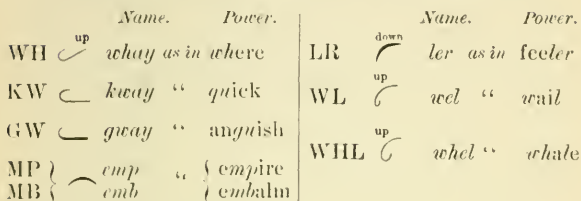 Name. Power.
up
WH whay as in where
KW kway “ quick
GW gway “ anguish
MP } emp “ { empire
MB { emb { embalm
Name. Power.
down
LR ler as in feeler
up
WL wel “ wail
up
WHL whel “ whale